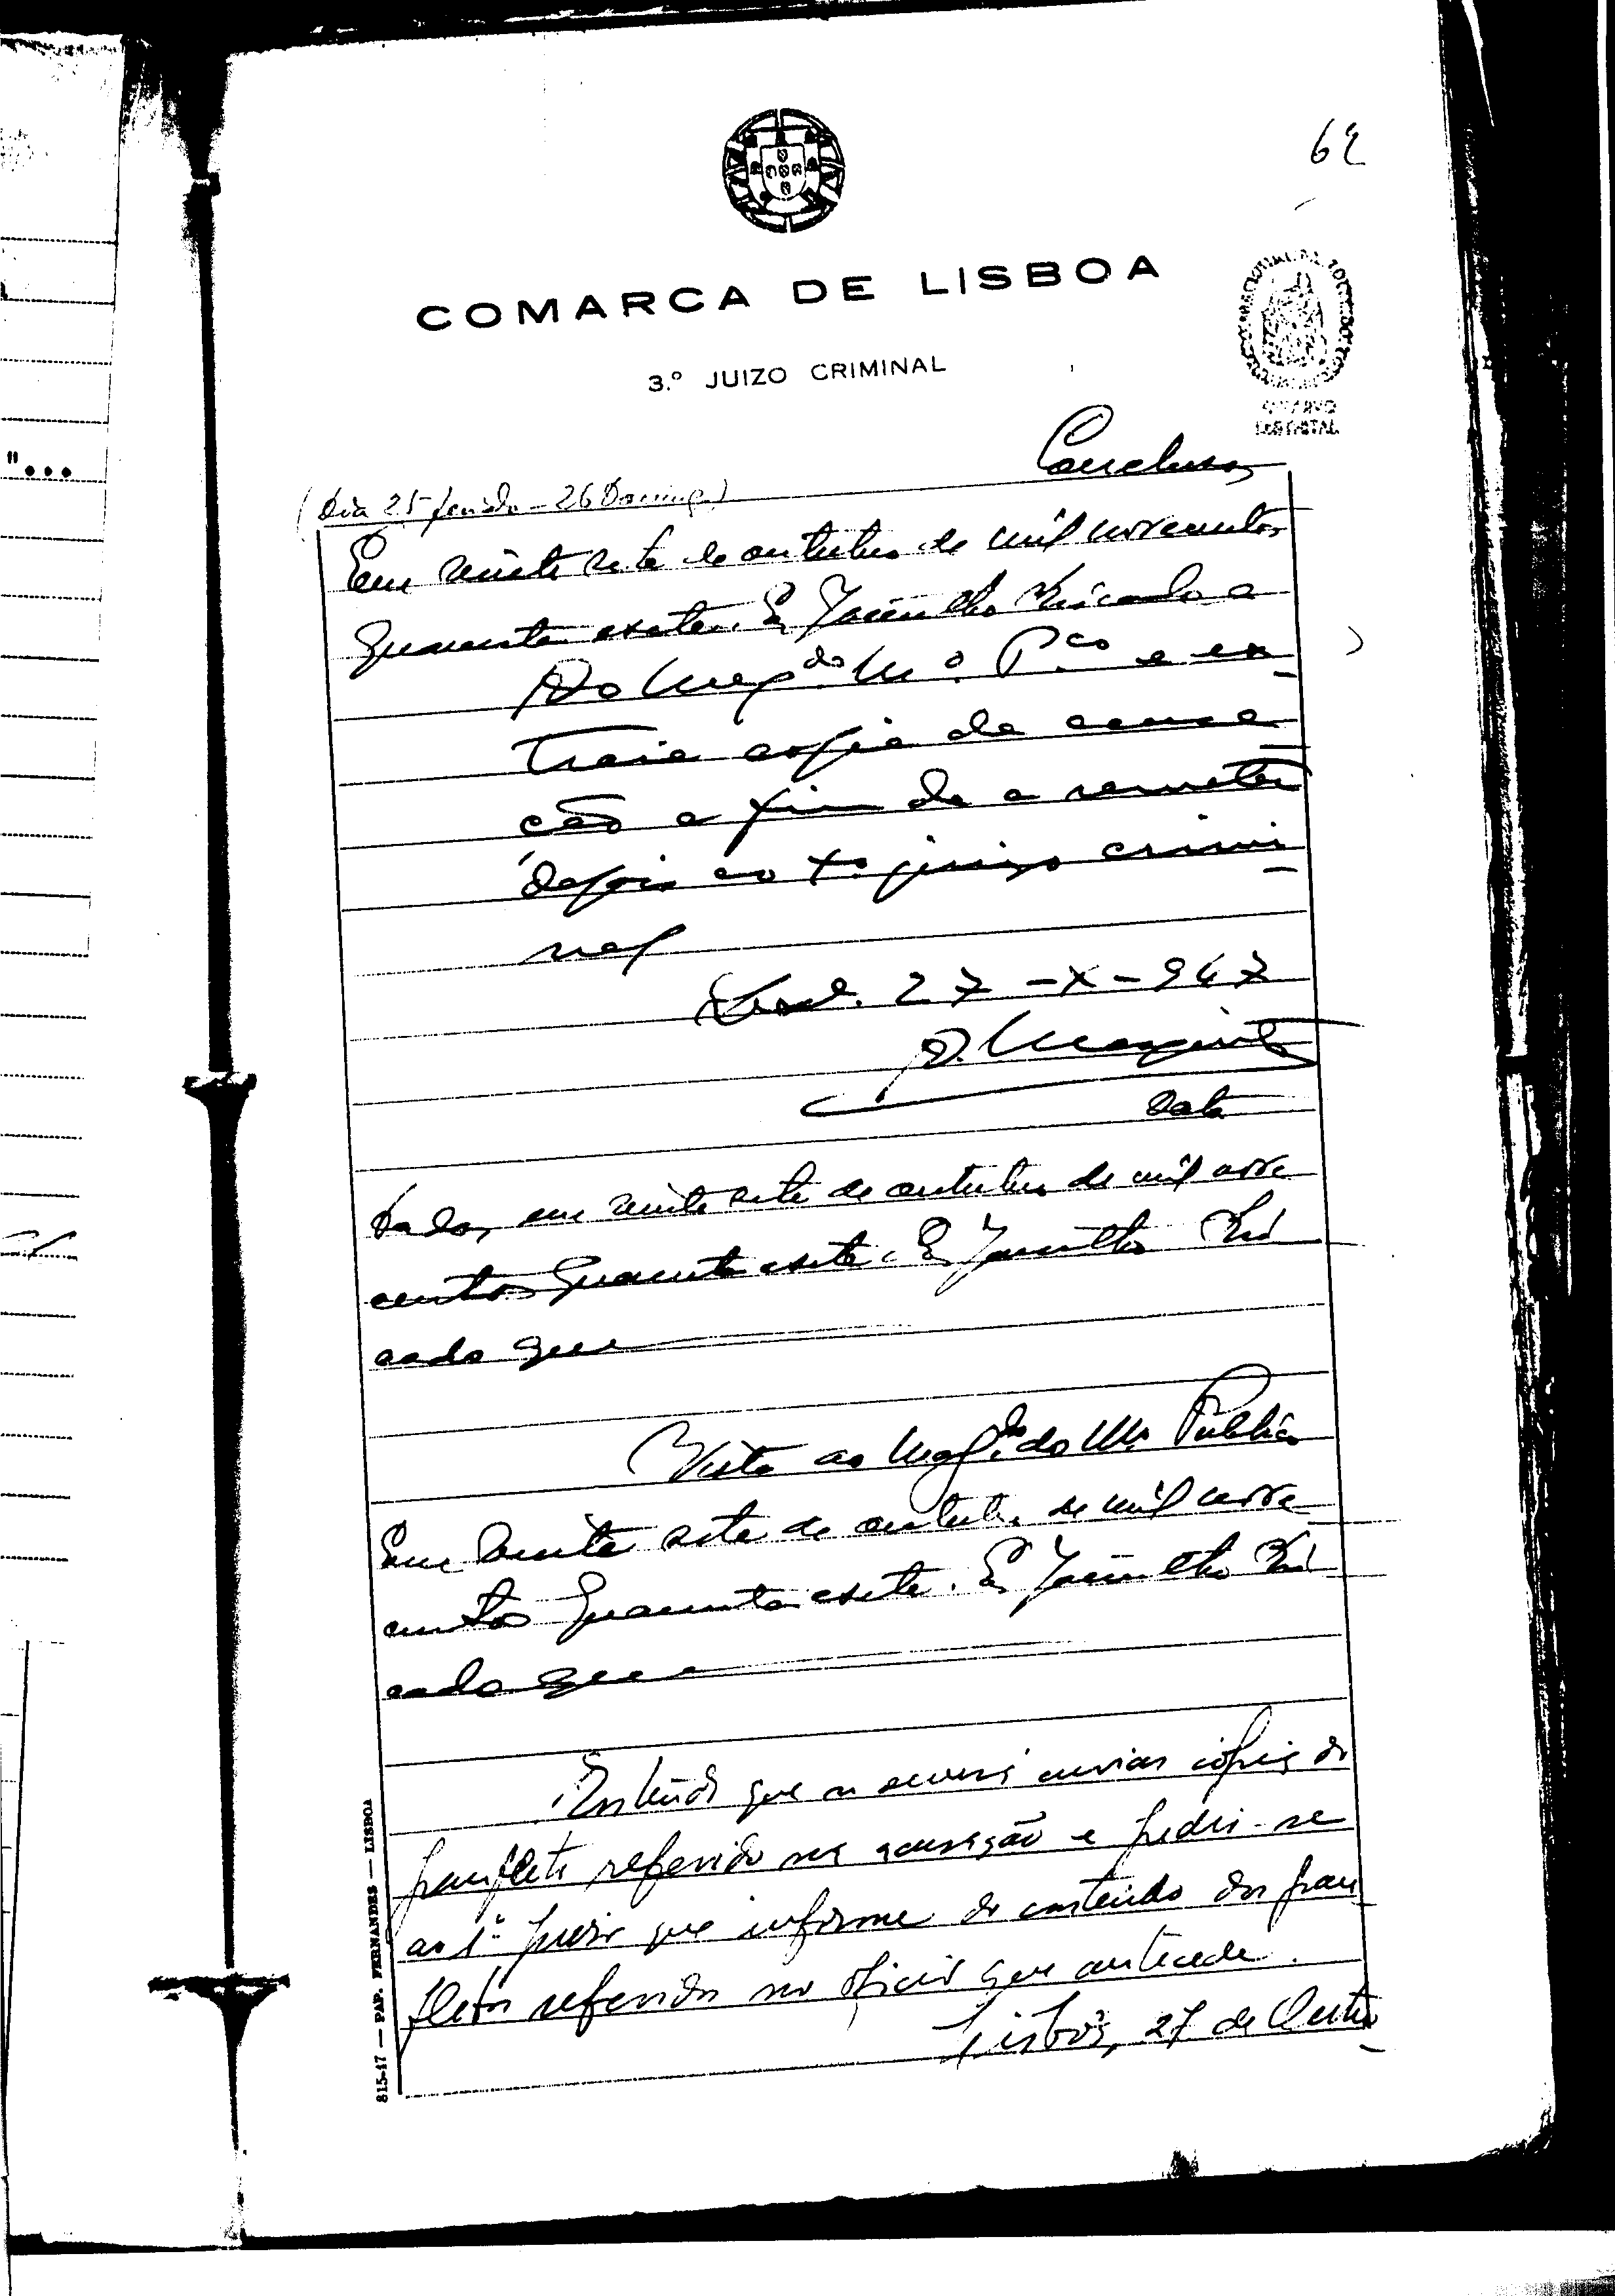 62
COMARCA DE LISBOA
3.º JUIZO CRIMINAL
ARQUIVO
DISTRITAL
Conclusos
(Dia 25 feriado - 26 Domingo)
Em vinte sete de outubro de mil novecentos
quarenta e sete. E Jacintho
Ao Mag.do M.º P.co e ex
traia copia da acusa
ção a fim de a remeter
depois ao juizo crimi
nal
27 - X - 947
Data
Dados, em vinte sete de outubro de mil nove
centos quarenta e sete. E Jacintho
Vista ao Mag.do do M.º Publico
Em vinte sete de outubro de mil nove
centos quarenta e sete. E Jacintho
Entendo que se deverá enviar cópia do
panfleto referido na acusação e pedir-se
ao 1.º Juizo que informe do conteúdo dos pan
fletos referidos no oficio que antecede.
Lisboa, 27 de Outu
815-47 — PAP. FERNANDES — LISBOA